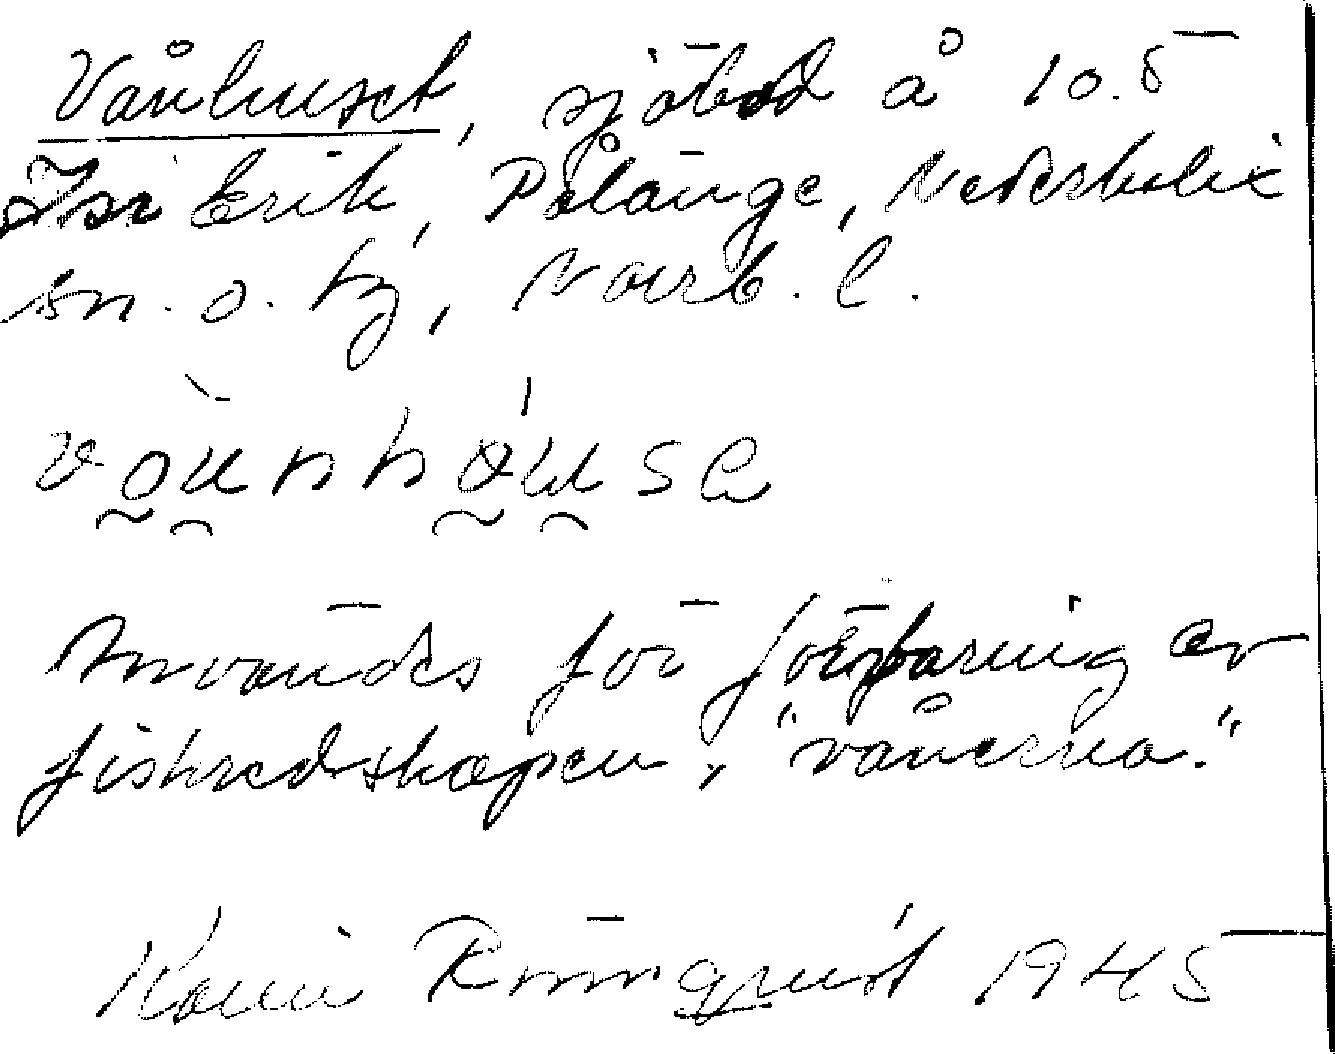 Vånhuset, sjöbod å 10.5
Isr Erik, Pålänge, Nederkalix
sn. o. tg, Norrb. l.
vounhouse
Användes för förvaring av
fiskredskapen, "vånerna."
Karin Rönnqvist 1945